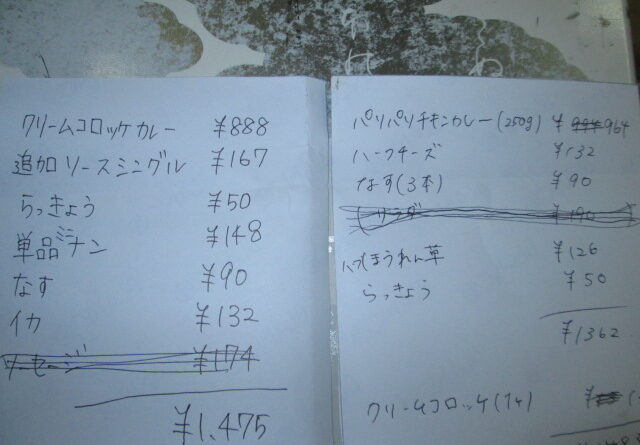 クリームコロッケカレー ¥888
追加ソースシングル ¥167
らっきょう ¥50
単品ミニナン ¥148
なす ¥90
イカ ¥132
ソーセージ ¥174
¥1,475
パリパリチキンカレー(250g) ¥ 964
ハーフチーズ ¥132
なす(3本) ¥90
¥190
ハーフほうれん草 ¥126
らっきょう ¥50
¥1362
クリームコロッケ(1ケ) ¥